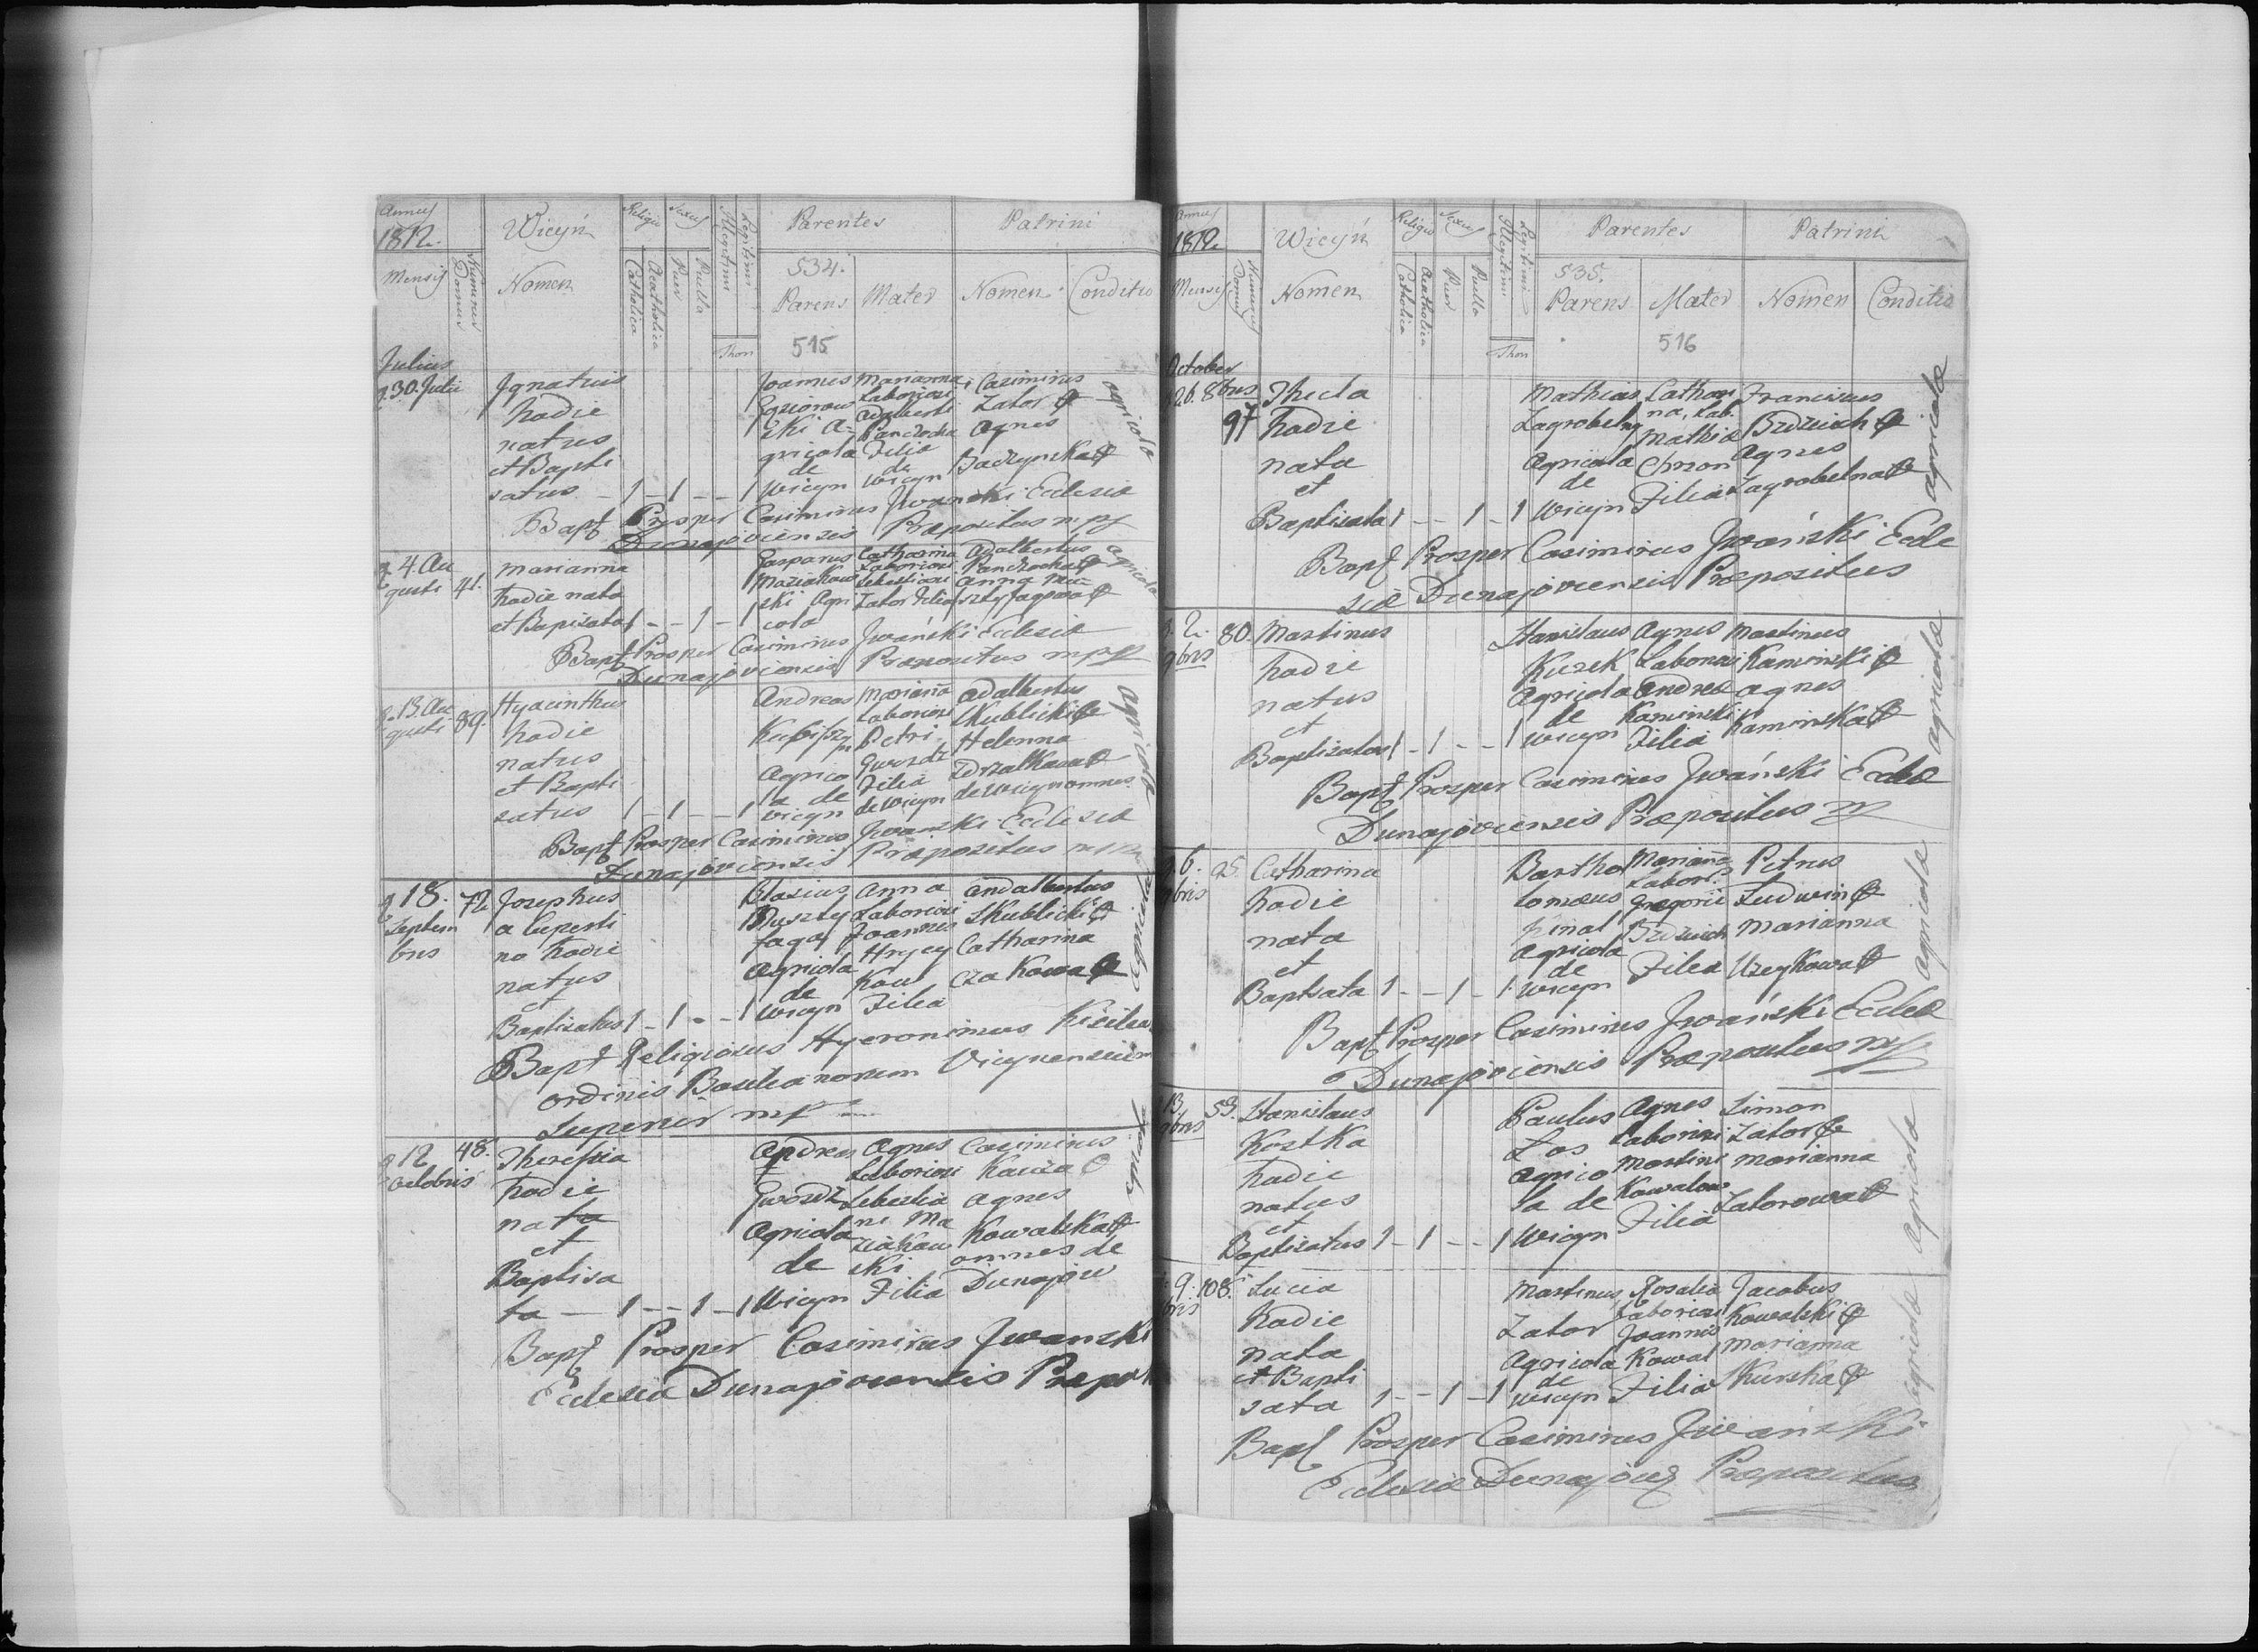 Annus
1812.
Wicyń
Religio
Sexus
Illegitimi
Legitimi
Parentes
Patrini
Mensis
Numerus Domus
Nomen
Catholica
Acatholica
Puer
Puella
Thori
534.
Parens
Mater
Nomen
Conditio
515
Julius
30. Julii
Ignatius
hodie
natus
et Bapti
satus 1 - 1 - - 1
Joannes
ski A
gricola
de
Wicyn
Marianna
Laboriosi
Adalberti
Panczocha
Filia
de
Wicyn
Casimirus
Zator
Agnes
Baczynska
agricola
Bapt Prosper Casimirus Jwanski Ecclesia
Dunajoviensis Præpositus mpp
4. Au
gusti
41.
Marianna
hodie nata
et Bapisata 1 - - 1 - 1
Gasparus
Maziakow
ski Agri
cola
Catharina
Laboriosi
Sebastiani
Zator Filia
Adalbertus
Panczocha
Anna Mu
sztyfagowa
agricola
Bapt Prosper Casimirus Jwański Ecclesiæ
Dunajoviensis Præpositus mpp
13. Au
gusti
89.
Hyacinthus
hodie
natus
et Bapti
satus 1 - 1 - - 1
Andreas
Agrico
la de
wicyn
Marianna
Laboriosi
Petri
Gwozdz
Filia
de Wicyn
Adalbertus
Skublicki
Helenna
de Wicyn omnes
agricolæ
Bapt Prosper Casimirus Jwanski Ecclesiæ
Dunajoviensis Præpositus
18.
Septem
bris
72
Josephus
a Cuperti
no hodie
natus
et
Baptisatus 1 - 1 - - 1
Blasius
Muszty
faga
Agricola
de
Wicyn
Anna
Laboriosi
Joannes
Hrycy
kow
Filia
Andalbertus
Skublicki
Catharina
Czakowa
agricola
Bapt Religiosus Hyeronimus
ordinis Basilianorum Vicynensium
Superior mp
12
octobris
48.
Theresia
hodie
nata
et
Baptisa
ta - 1 - - 1 - 1
Andreas
Gwozdz
Agricola
de
Wicyn
Agnes
Laboriosi
Sebestia
ni Ma
ziakow
ski
Filia
Casimirus
Kawza
Agnes
Kowalska
omnes de
Dunajów
Bapt Prosper Casimirus Jwanski
Ecclesiæ Dunajoviensis
Annus
1812.
Wicyń
Religio
Sexus
Illegitimi
Legitimi
Parentes
Patrini
Mensis
Numerus Domus
Nomen
Catholica
Acatholica
Puer
Puella
Thori
535.
Parens
Mater
Nomen
Conditio
516
October
26. 8bris
97
Thecla
hodie
nata
et
Baptisata 1 - - 1 - 1
Mathias
Zagrobelny
Agricola
de
Wicyn
Cathari
na, Lab.
Mathiæ
Chron
Filia
Franciscus
Agnes
Zagrobelna
agricolæ
Bapt Prosper Casimirus Jwański Eccle
siæ Dunajoviensis Præpositus
2.
9bris
80.
Martinus
hodie
natus
et
Baptisatus 1 - 1 - - 1
Stanislaus
Kurek
Agricola
de
Wicyn
Agnes
Laboriosi
Andreæ
Kaminski
Filia
Martinus
Kaminski
Agnes
Kaminska
agricolæ
Bapt Prosper Casimirus Jwański Eccleæ
Dunajoviensis Præpositus mp
6.
9bris
25.
Catharina
hodie
nata
et
Baptsata 1 - - 1 - 1
Bartho
lomæus
Agricola
de
Wicyn
Marianna
Labor.
Gregorii
Filia
Petrus
Ludwin
Marianna
Uzeykowa
agricolæ
Bapt Prosper Casimirus Jwański Eccleæ
Dunajoviensis Præpositus mp
13.
9bris
53.
Stanislaus
Kostka
hodie
natus
et
Baptisatus 1 - 1 - - 1
Paulus
Los
Agrico
la de
Wicyn
Agnes
Laboriosi
Martini
Kowalow
Filia
Simon
Zator
Marianna
Zatorowa
agricolæ
9.
bris
108.
Lucia
hodie
nata
et Bapti
sata 1 - - 1 - 1
Martinus
Zator
Agricola
de
Wicyn
Rosalia
Laboriosi
Joannis
Kowal
Filia
Jacobus
Kowalski
Marianna
Kurska
agricolæ
Bapt Prosper Casimirus Jwański
Ecclesiæ Dunajow Præpositus